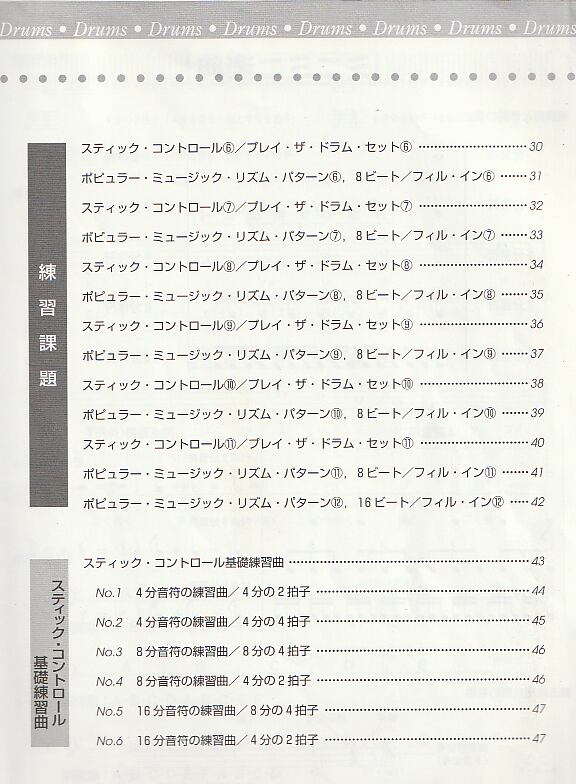 Drums • Drums • Drums • Drums • Drums • Drums • Drums • Drums
練習課題
スティック・コントロール⑥／プレイ・ザ・ドラム・セット⑥ ……………………30
ポピュラー・ミュージック・リズム・パターン⑥，8ビート／フィル・イン⑥ ……31
スティック・コントロール⑦／プレイ・ザ・ドラム・セット⑦ ……………………32
ポピュラー・ミュージック・リズム・パターン⑦，8ビート／フィル・イン⑦ ……33
スティック・コントロール⑧／プレイ・ザ・ドラム・セット⑧ ……………………34
ポピュラー・ミュージック・リズム・パターン⑧，8ビート／フィル・イン⑧ ……35
スティック・コントロール⑨／プレイ・ザ・ドラム・セット⑨ ……………………36
ポピュラー・ミュージック・リズム・パターン⑨，8ビート／フィル・イン⑨ ……37
スティック・コントロール⑩／プレイ・ザ・ドラム・セット⑩ ……………………38
ポピュラー・ミュージック・リズム・パターン⑩，8ビート／フィル・イン⑩ ……39
スティック・コントロール⑪／プレイ・ザ・ドラム・セット⑪ ……………………40
ポピュラー・ミュージック・リズム・パターン⑪，8ビート／フィル・イン⑪ ……41
ポピュラー・ミュージック・リズム・パターン⑫，16ビート／フィル・イン⑫ ……42
スティック・コントロール
基礎練習曲
スティック・コントロール基礎練習曲 ……………………43
No.1 4分音符の練習曲／4分の2拍子 ……………………44
No.2 4分音符の練習曲／4分の4拍子 ……………………45
No.3 8分音符の練習曲／8分の4拍子 ……………………46
No.4 8分音符の練習曲／4分の2拍子 ……………………46
No.5 16分音符の練習曲／8分の4拍子 ……………………47
No.6 16分音符の練習曲／4分の2拍子 ……………………47